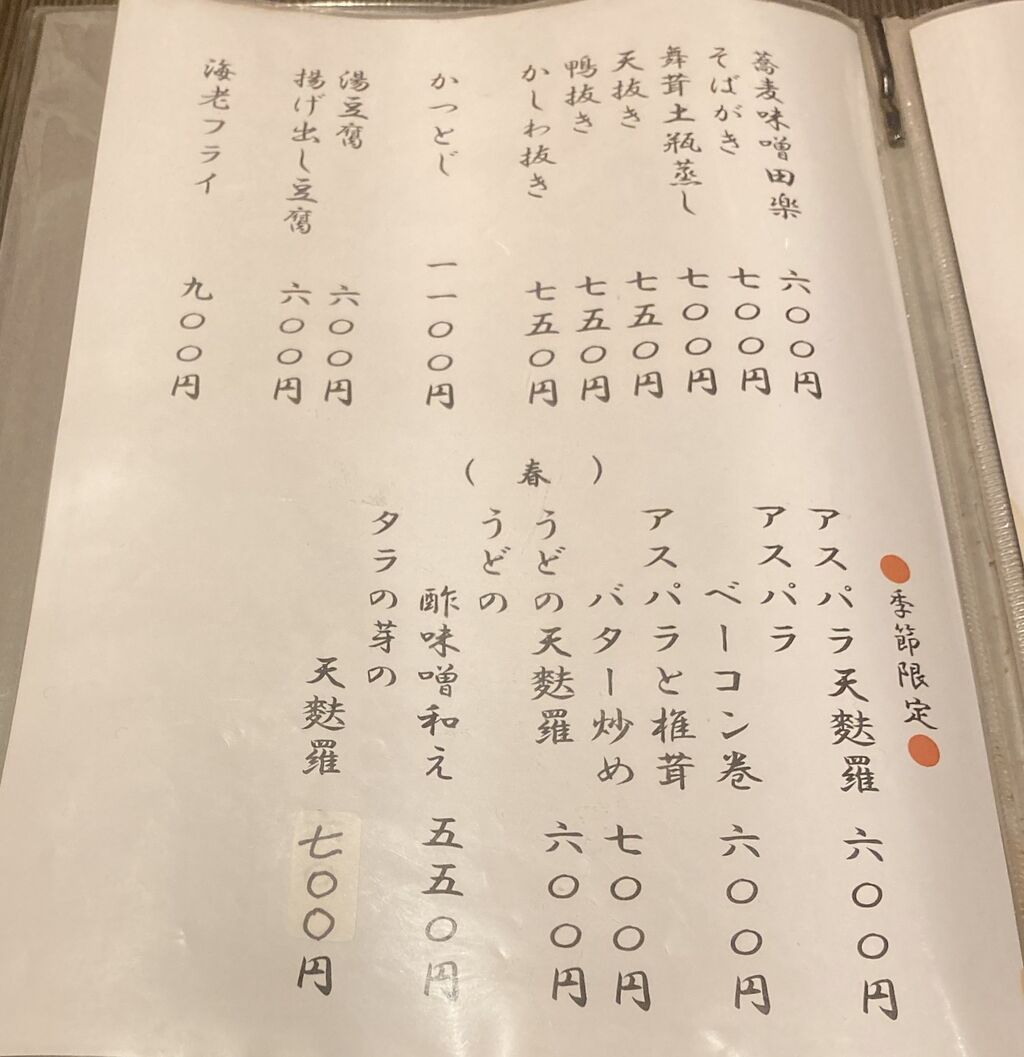 蕎麦味噌田楽 六〇〇円
そばがき 七〇〇円
舞茸土瓶蒸し 七〇〇円
天抜き 七五〇円
鴨抜き 七五〇円
かしわ抜き 七五〇円
かつとじ 一一〇〇円
湯豆腐 六〇〇円
揚げ出し豆腐 六〇〇円
海老フライ 九〇〇円
●季節限定●
(春)
アスパラ天麩羅 六〇〇円
アスパラ
ベーコン巻 六〇〇円
アスパラと椎茸
バター炒め 七〇〇円
うどの天麩羅 六〇〇円
うどの
酢味噌和え 五五〇円
タラの芽の
天麩羅 七〇〇円